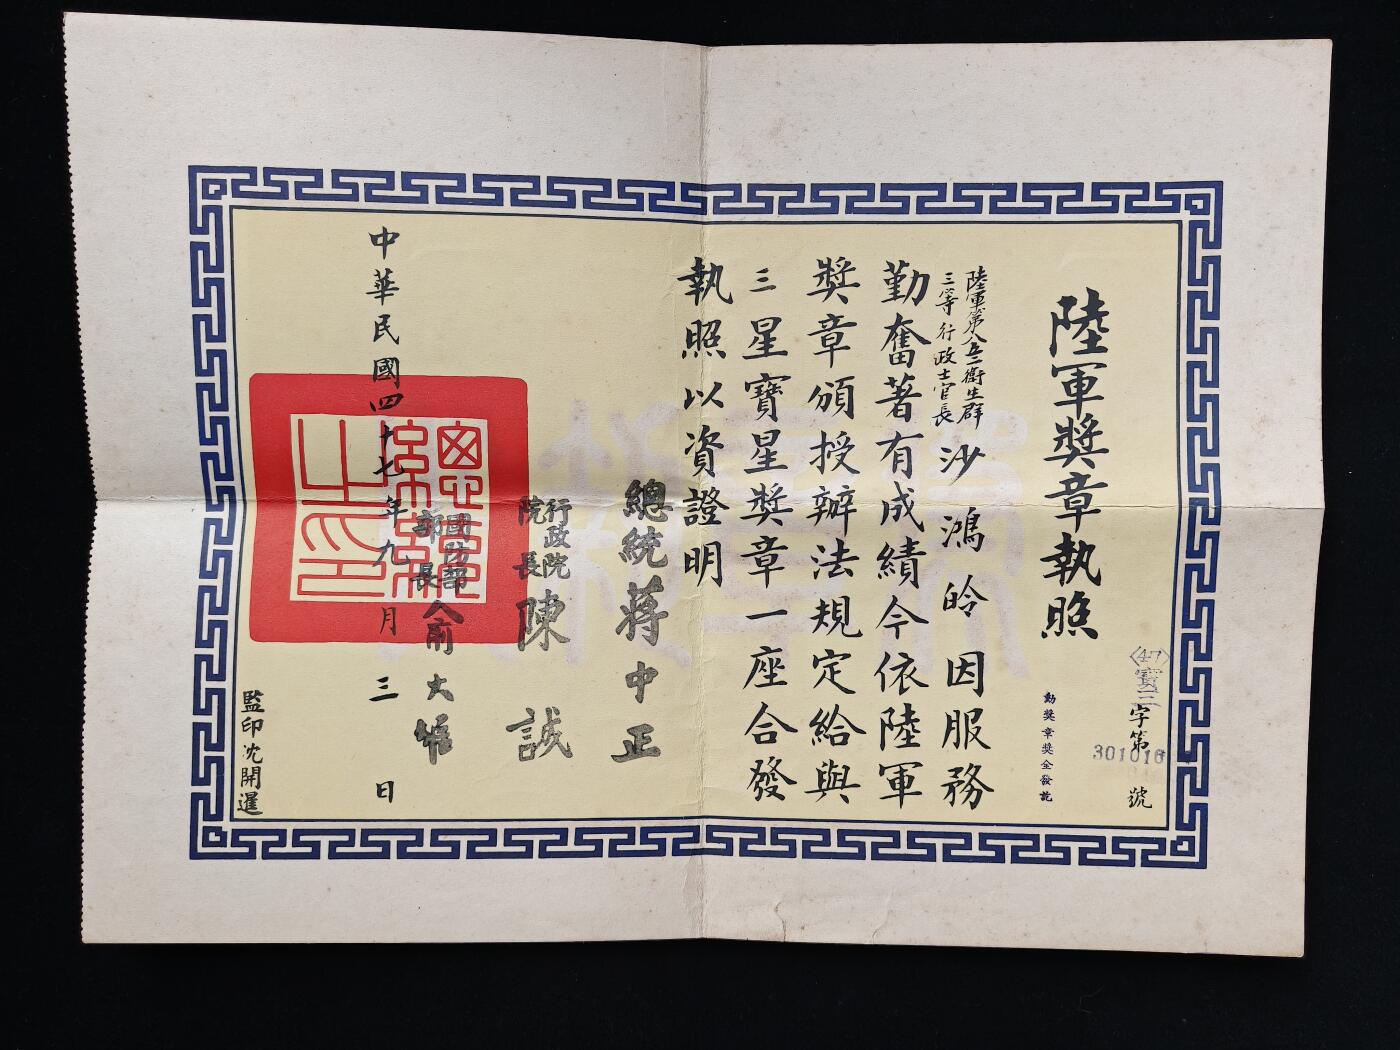 陸軍獎章執照
〈47〉寶三字第301016號
勳獎章獎金發訖
陸軍第八五二衛生群
三等行政士官長
沙鴻皊因服務
勤奮著有成績今依陸軍
獎章頒授辦法規定給與
三星寶星獎章一座合發
執照以資證明
總統蔣中正
行政院院長陳誠
國防部部長俞大維
中華民國四十七年九月三日
監印沈開暹
總統之印